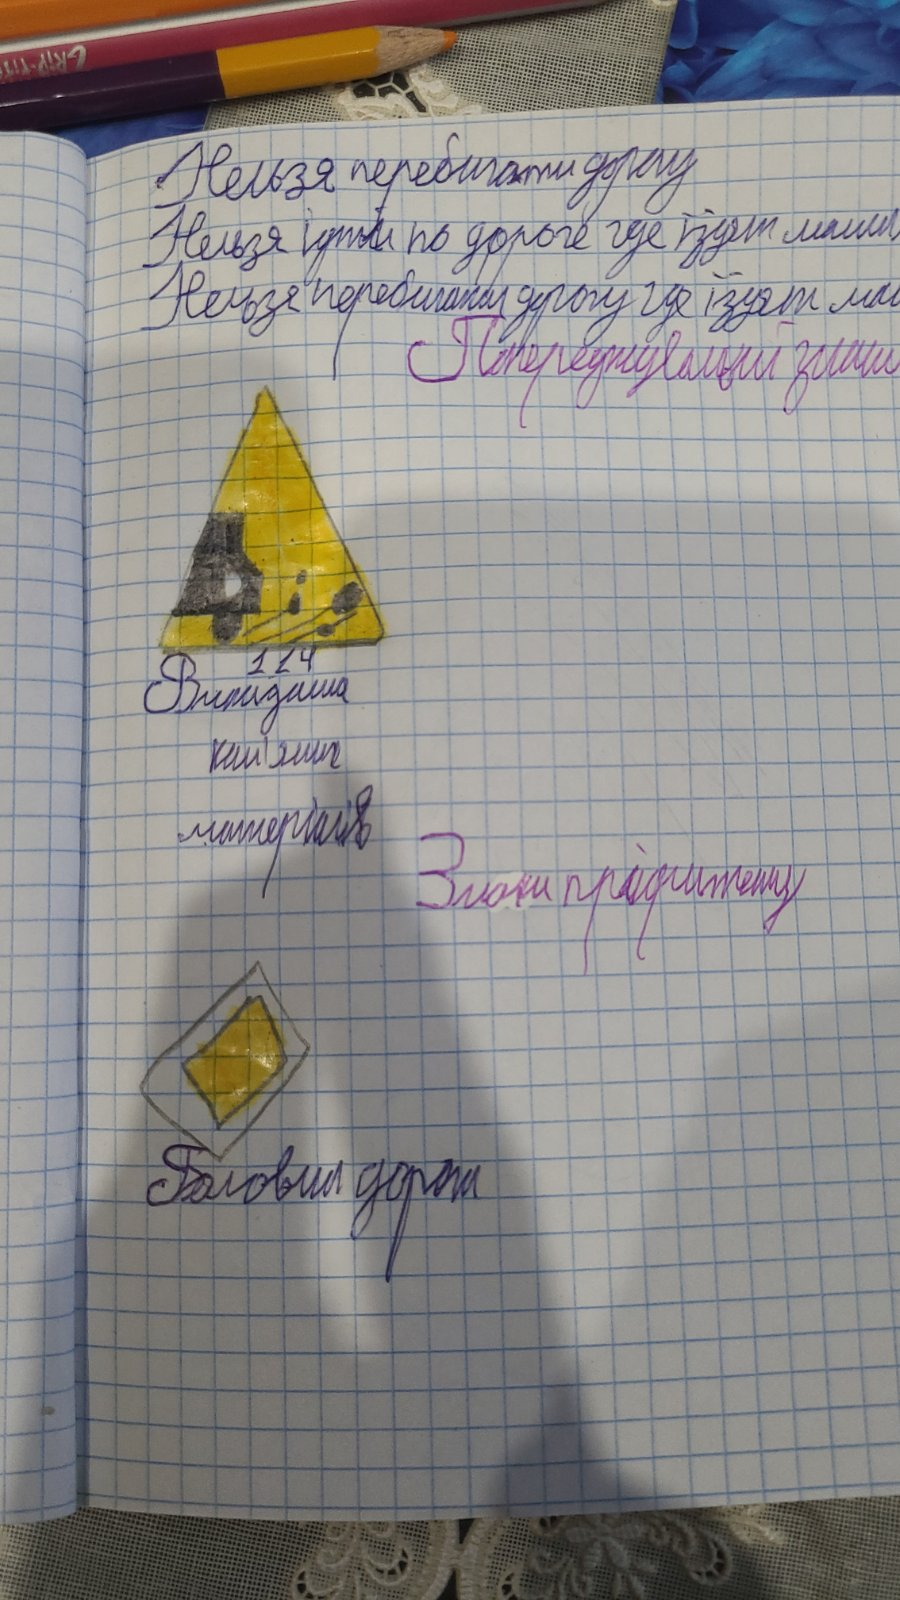 GRIP
Нельзя перебигати дорогу
Нельзя ідти по дороге где їздят маши
Нельзя перебигати дорогу где їздят ма
Попереджувальний знаки
114
Викидання
кам'яних
матеріалів
Знаки пріфитету
Головна дорога